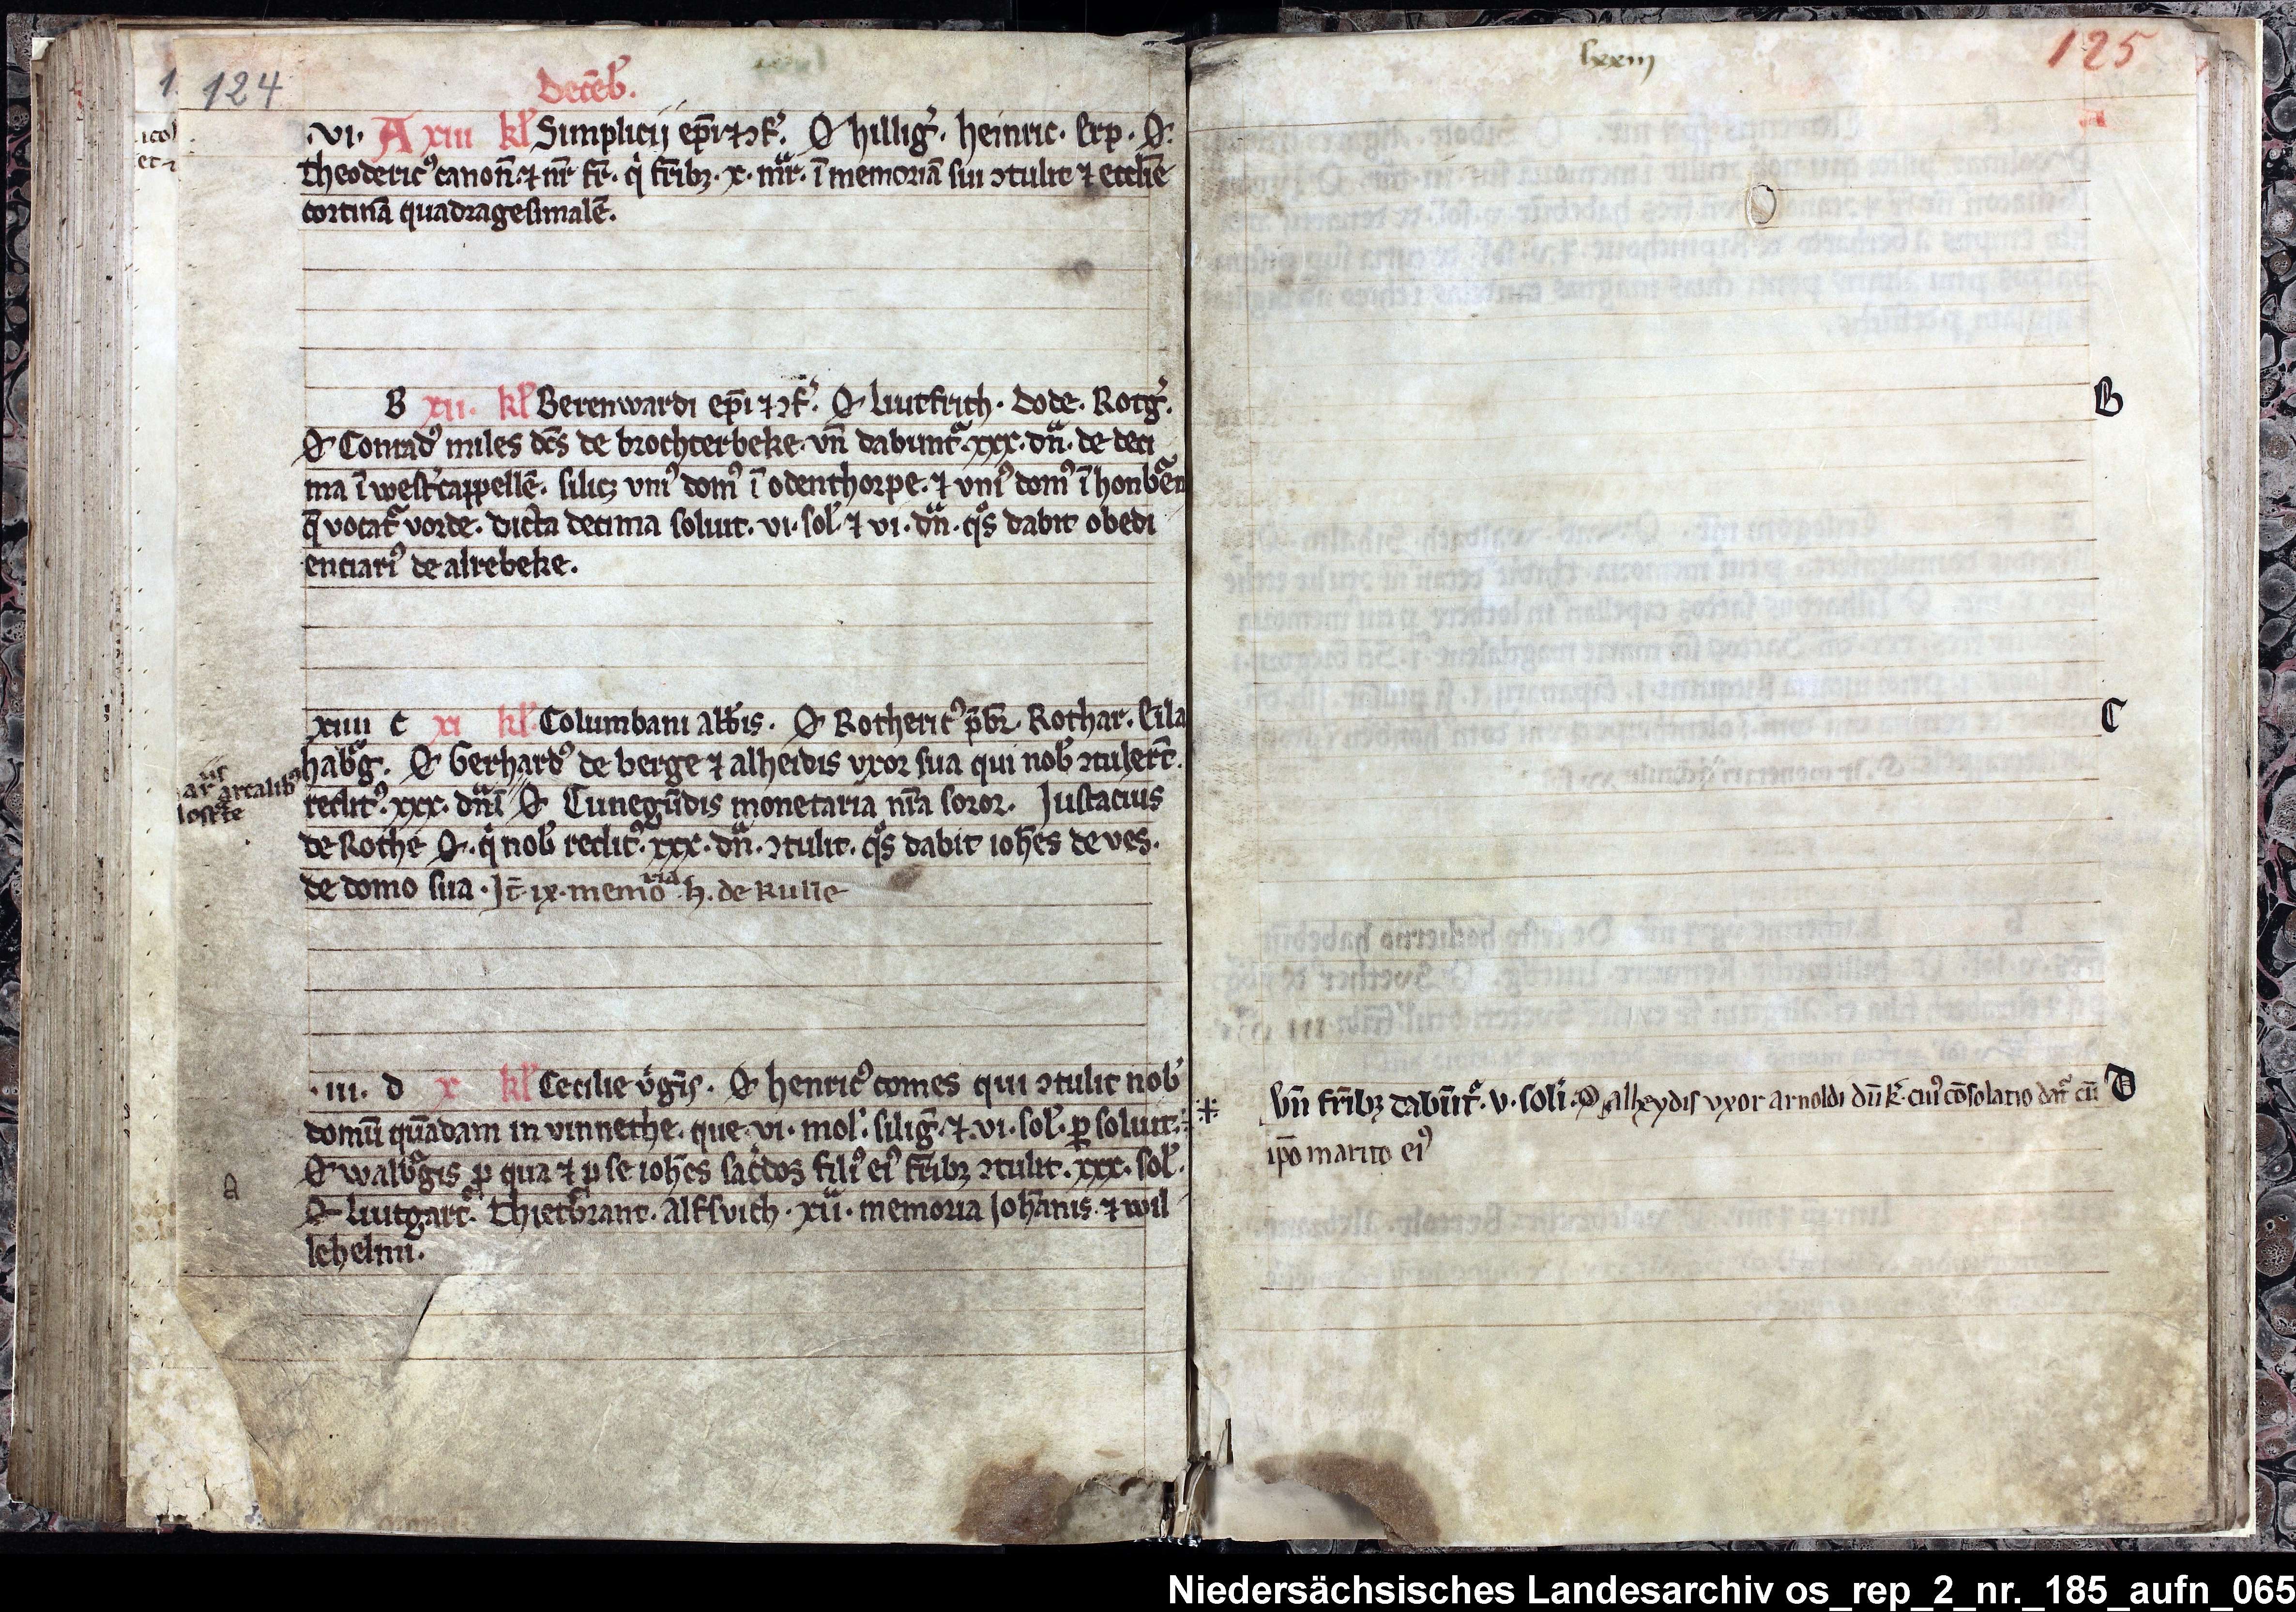 124
Decēb᷎.
.vi. A xiii kl᷎ Simplicij ep̄i ⁊ ↄf᷎. O᷎ hillig᷎. heinric. Erp. O᷎.
Theoderic᷒ canon̄. ⁊ nr̄ fr̄. q̇ fr̄ibꝫ. x. mar᷎. ī memoriā sui ↄtulit ⁊ eccl̄ie
cortinā quadragesimalē.
B xii. kl᷎ Berenwardi ep̄i ⁊ ↄf᷎. O᷎ Liutfrith. Dode. Rotg᷎.
O᷎ Conrad᷒ miles dc̄s de brochterbeke. vn̄ dabunt᷎. xxx. dn̄. de deci
ma ī west᷎cappellē. silicꝫ vni᷒ dom᷒ ī odenthorpe. ⁊ vni᷒ dom᷒ ī honb᷎en
q̄ vocat᷎ vorde. dicta decima soluit. vi. sol᷎ ⁊ vi. dn̄. q̊s dabit obedi
enciari᷒ de alrebeke.
xiiii C xi kl᷎ Columbani abb̄is. O᷎ Rotheric᷒ p̄br̄. Rothar. Eila
hab᷎g. O᷎ Gerhard᷒ de berge ⁊ alheidis vxor sua qui nob᷎ ↄtuler̄t.
reclit᷒. xxx. dn̄ O᷎ Cunegūdis monetaria nr̄a soror. Justacius
de Rothe O᷎. q̇ nob᷎ reclit᷒. xxx. dn̄. ↄtulit. q̊s dabit ioh̄es de ves.
de domo sua. Jt̄ ix. memoria h. de Rulle
.iii. d x kl᷎ Cecilie v᷎gīs. O᷎ henric᷒ comes qui ↄtulit nob᷎
domū quādam in vinnethe. que. vi. mol᷎. silig᷎. ⁊. vi. sol᷎. ꝑsoluit.
O᷎ walb᷎gis ꝓ qua ⁊ ꝓ se ioh̄es sac᷎dos fili᷒ ei᷒ fr̄ibꝫ ↄtulit. xxx. sol᷎.
A
O᷎ Liutgart᷎. Thietbrant. alfsuith. xii. memoria Joh̄anis. ⁊ wil
lehelmi.
lxxiii
125
B
C
vn̄ fr̄ibꝫ dabūt᷎. v. soli᷎. O᷎ alheydis vxor arnoldi dūk᷎. cui᷒ cōsolatio dat᷎ cū D
ip̄o marito ei᷒
Niedersächsisches Landesarchiv os_rep_2_nr._185_aufn_065